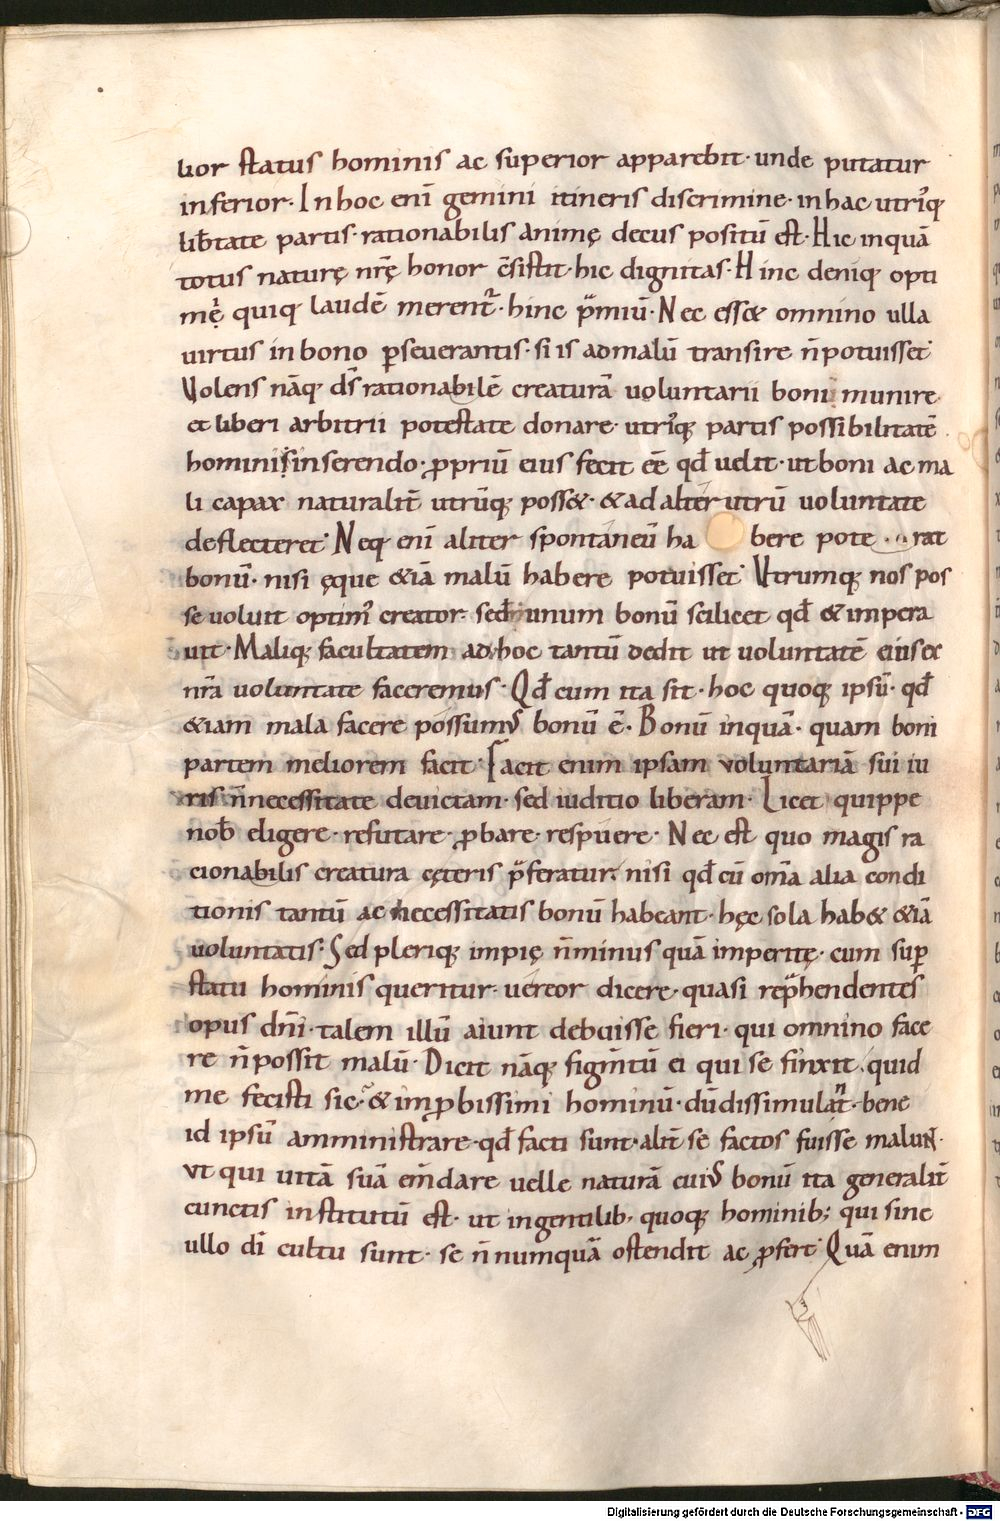 lior status hominis ac superior apparebit· unde putatur
inferior· In hoc eni̅ gemini itineris discrimine· in hac utri᷒q;
lib̅tate partis· rationabilis animę decus positu̅ est· Hic inqua̅
totus naturę nr̅ę honor c̅sistit· hic dignitas· Hinc deniq; opti
mę quiq; laude̅ merent᷑· hinc p̅miu̅· Nec ess& omnino ulla
uirtus in bono p̲seuerantis· si is ad malu̅ transire n̅ potuisset·
Volens na̅q; ds̅ rationabile̅ creatura̅ uoluntarii boni munire·
et liberi arbitrii potestate donare· utri᷒q; partis possibilitate̅
hominis inserendo· ꝓpriu̅ eius fecit ee̅ qd̅ uelit· ut boni ac ma
li capax naturalit̅ utru̅q; poss&· & ad alter utru̅ uoluntate
deflecteret· Neq; eni̅ aliter spontaneu̅ ha bere pote rat
bonu̅· nisi ęque &ia̅ malu̅ habere potuisset· Vtrumq; nos pos
se uoluit optim᷒ creator· sed unum bonu̅ scilicet qd̅ & impera
uit· Maliq; facultatem ad hoc tantu̅ dedit ut uoluntate̅ eius ex
nr̅a uoluntate faceremus· Qd̅ cum ita sit· hoc quoq; ipsu̅· qd̅
&iam mala facere possum᷒ bonu̅ e̅· Bonu̅ inqua̅· quam boni
partem meliorem facit· Facit enim ipsam voluntaria̅ sui iu
ris n̅ necessitate deuictam· sed iuditio liberam· Licet quippe
nob̅ eligere· refutare· ꝓbare· respuere· Nec est quo magis ra
cionabilis creatura cęteris p̅feratur· nisi qd̅ cu̅ om̅a alia condi
tionis tantu̅ ac necessitatis bonu̅ habeant· hęc sola hab& &ia̅
uoluntatis· Sed pleriq; impię n̅ minus qua̅ imperitę· cum sup̲
statu hominis queritur· uereor dicere· quasi rep̅hendentes
opus dn̅i· talem illu̅ aiunt debuisse fieri· qui omnino face
re n̅ possit malu̅· Dicit na̅q; figm̅tu̅ ei qui se finxit· quid
me fecisti sic· & imꝓbissimi hominu̅· du̅ dissimulan̅t· bene
id ipsu̅ amministrare· qd̅ facti sunt· alit̅ se factos fuisse malun̅t·
vt qui uita̅ sua̅ em̅dare uelle natura̅ cui᷒ bonu̅ ita generalit̅
cunctis institutu̅ est· ut in gentilib; quoq; hominib; qui sine
ullo di̅ cultu sunt· se n̅ numqua̅ ostendit ac ꝓfert· Qua̅ enim
Digitalisierung gefördert durch die Deutsche Forschungsgemeinschaft - DFG